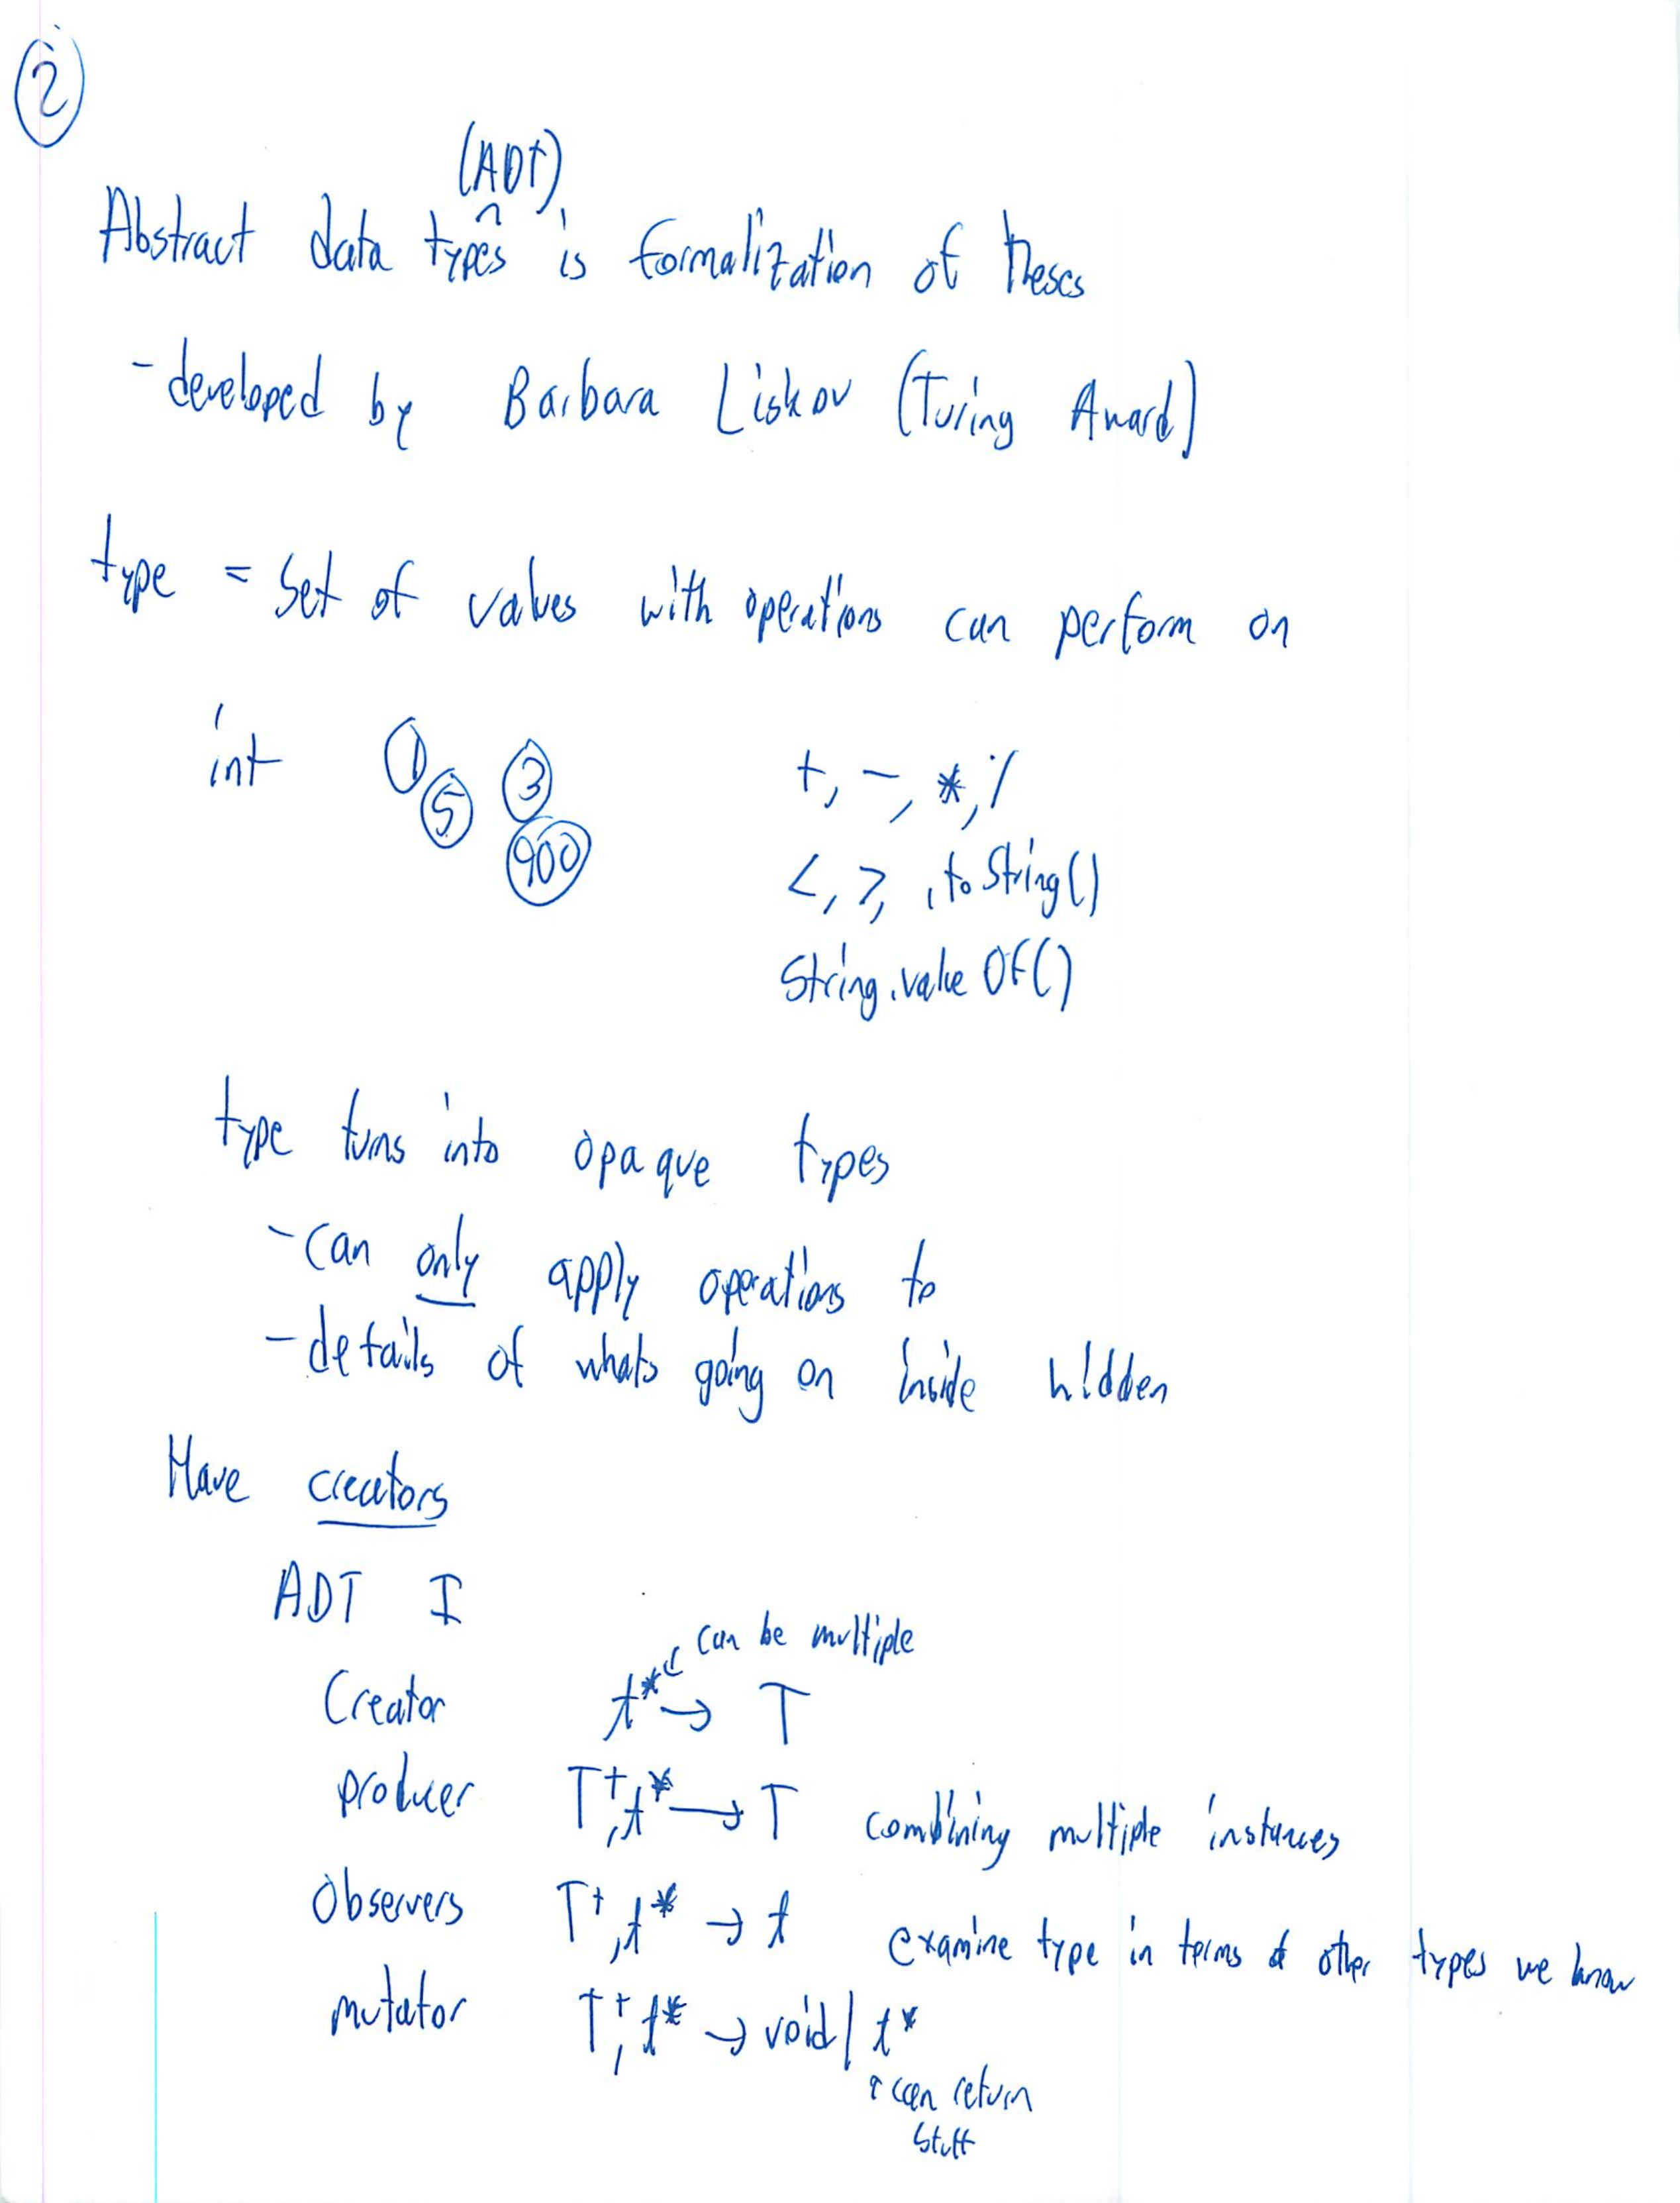 2
(ADT)
Abstract data types ^ is formalization of theses
- developed by Barbara Liskov (Turing Award)
type = set of values with operations can perform on
int 1 5 3 900 +, -, *, /
<, >, .toString()
String.valueOf()
type turns into opaque types
- can only apply operations to
- details of whats going on inside hidden
Have creators
ADT I
can be multiple
Creator t* → T
producer T+, t* → T combining multiple instances
Observers T+, t* → t examine type in terms of other types we know
mutator T+, t* → void / t*
↑ can return
stuff